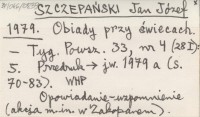 SZCZEPAŃSKI Jan Józef
1979. Obiady przy świecach.
— Tyg. Powsz. 33, nr 4 (28 I):
5. Przedruk → jw. 1979 a (s.
70-83). WHP
Opowiadanie-wspomnienie
(akcja m.in. w Zakopanem).